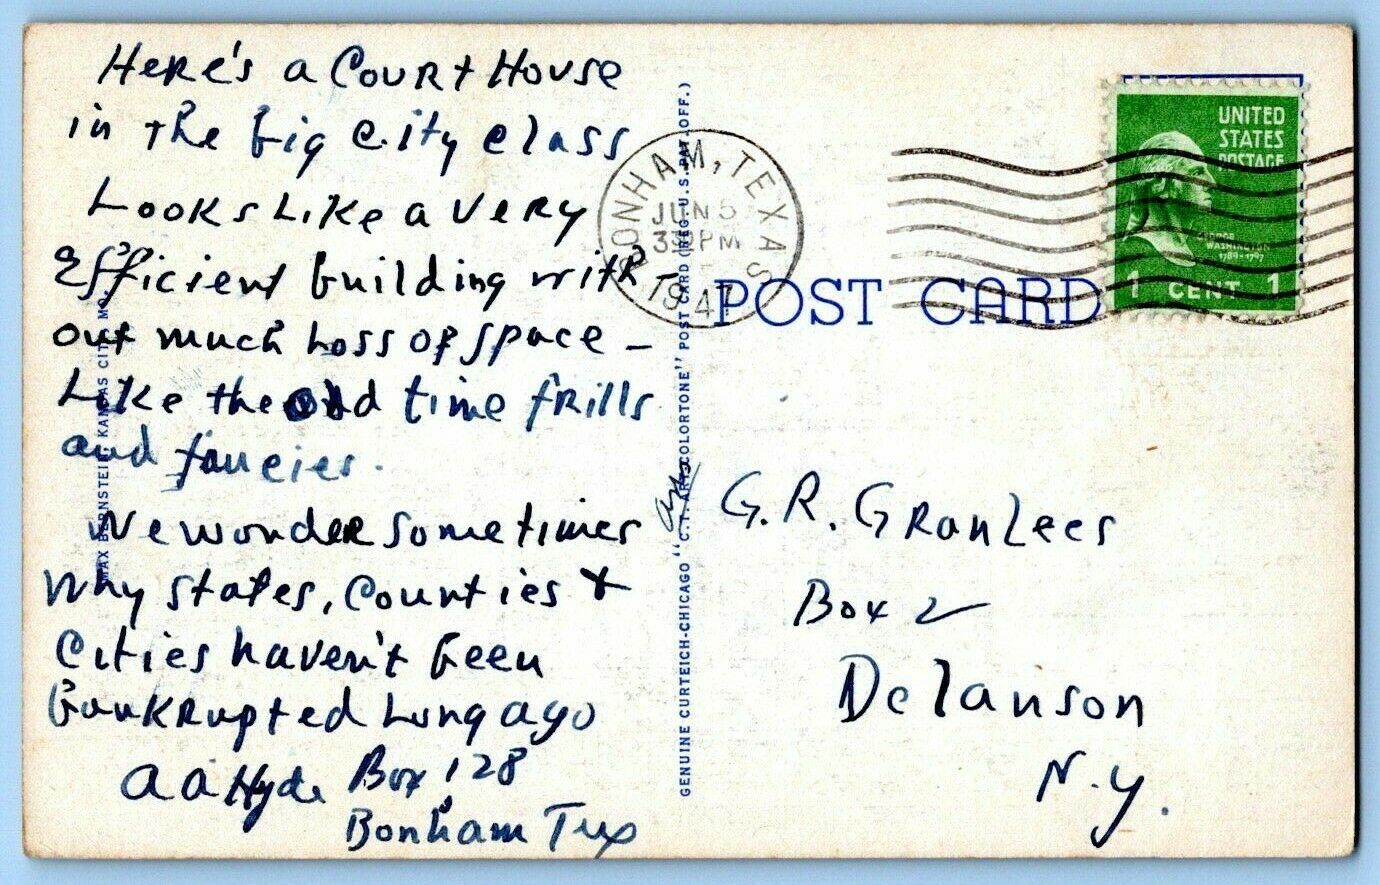 Here's a Court House
in the big City class
Looks Like a very
Efficient building with-
out much Loss of space -
Like the old time frills
and fancies.
We wonder sometimes
Why states, Counties +
Cities haven't been
bankrupted Long ago
A A Hyde Box 128
Bonham Tex
MAX BERNSTEIN, KANSAS CITY, MO.
GENUINE CURTEICH-CHICAGO "C.T. ART-COLORTONE" POST CARD (REG. U.S. PAT. OFF.)
BONHAM, TEXAS
JUN 5
3 PM
1947
POST CARD
UNITED
STATES
POSTAGE
GEORGE
WASHINGTON
1789-1797
1 CENT 1
G. R. GRANLEES
Box 2
Delanson
N.Y.